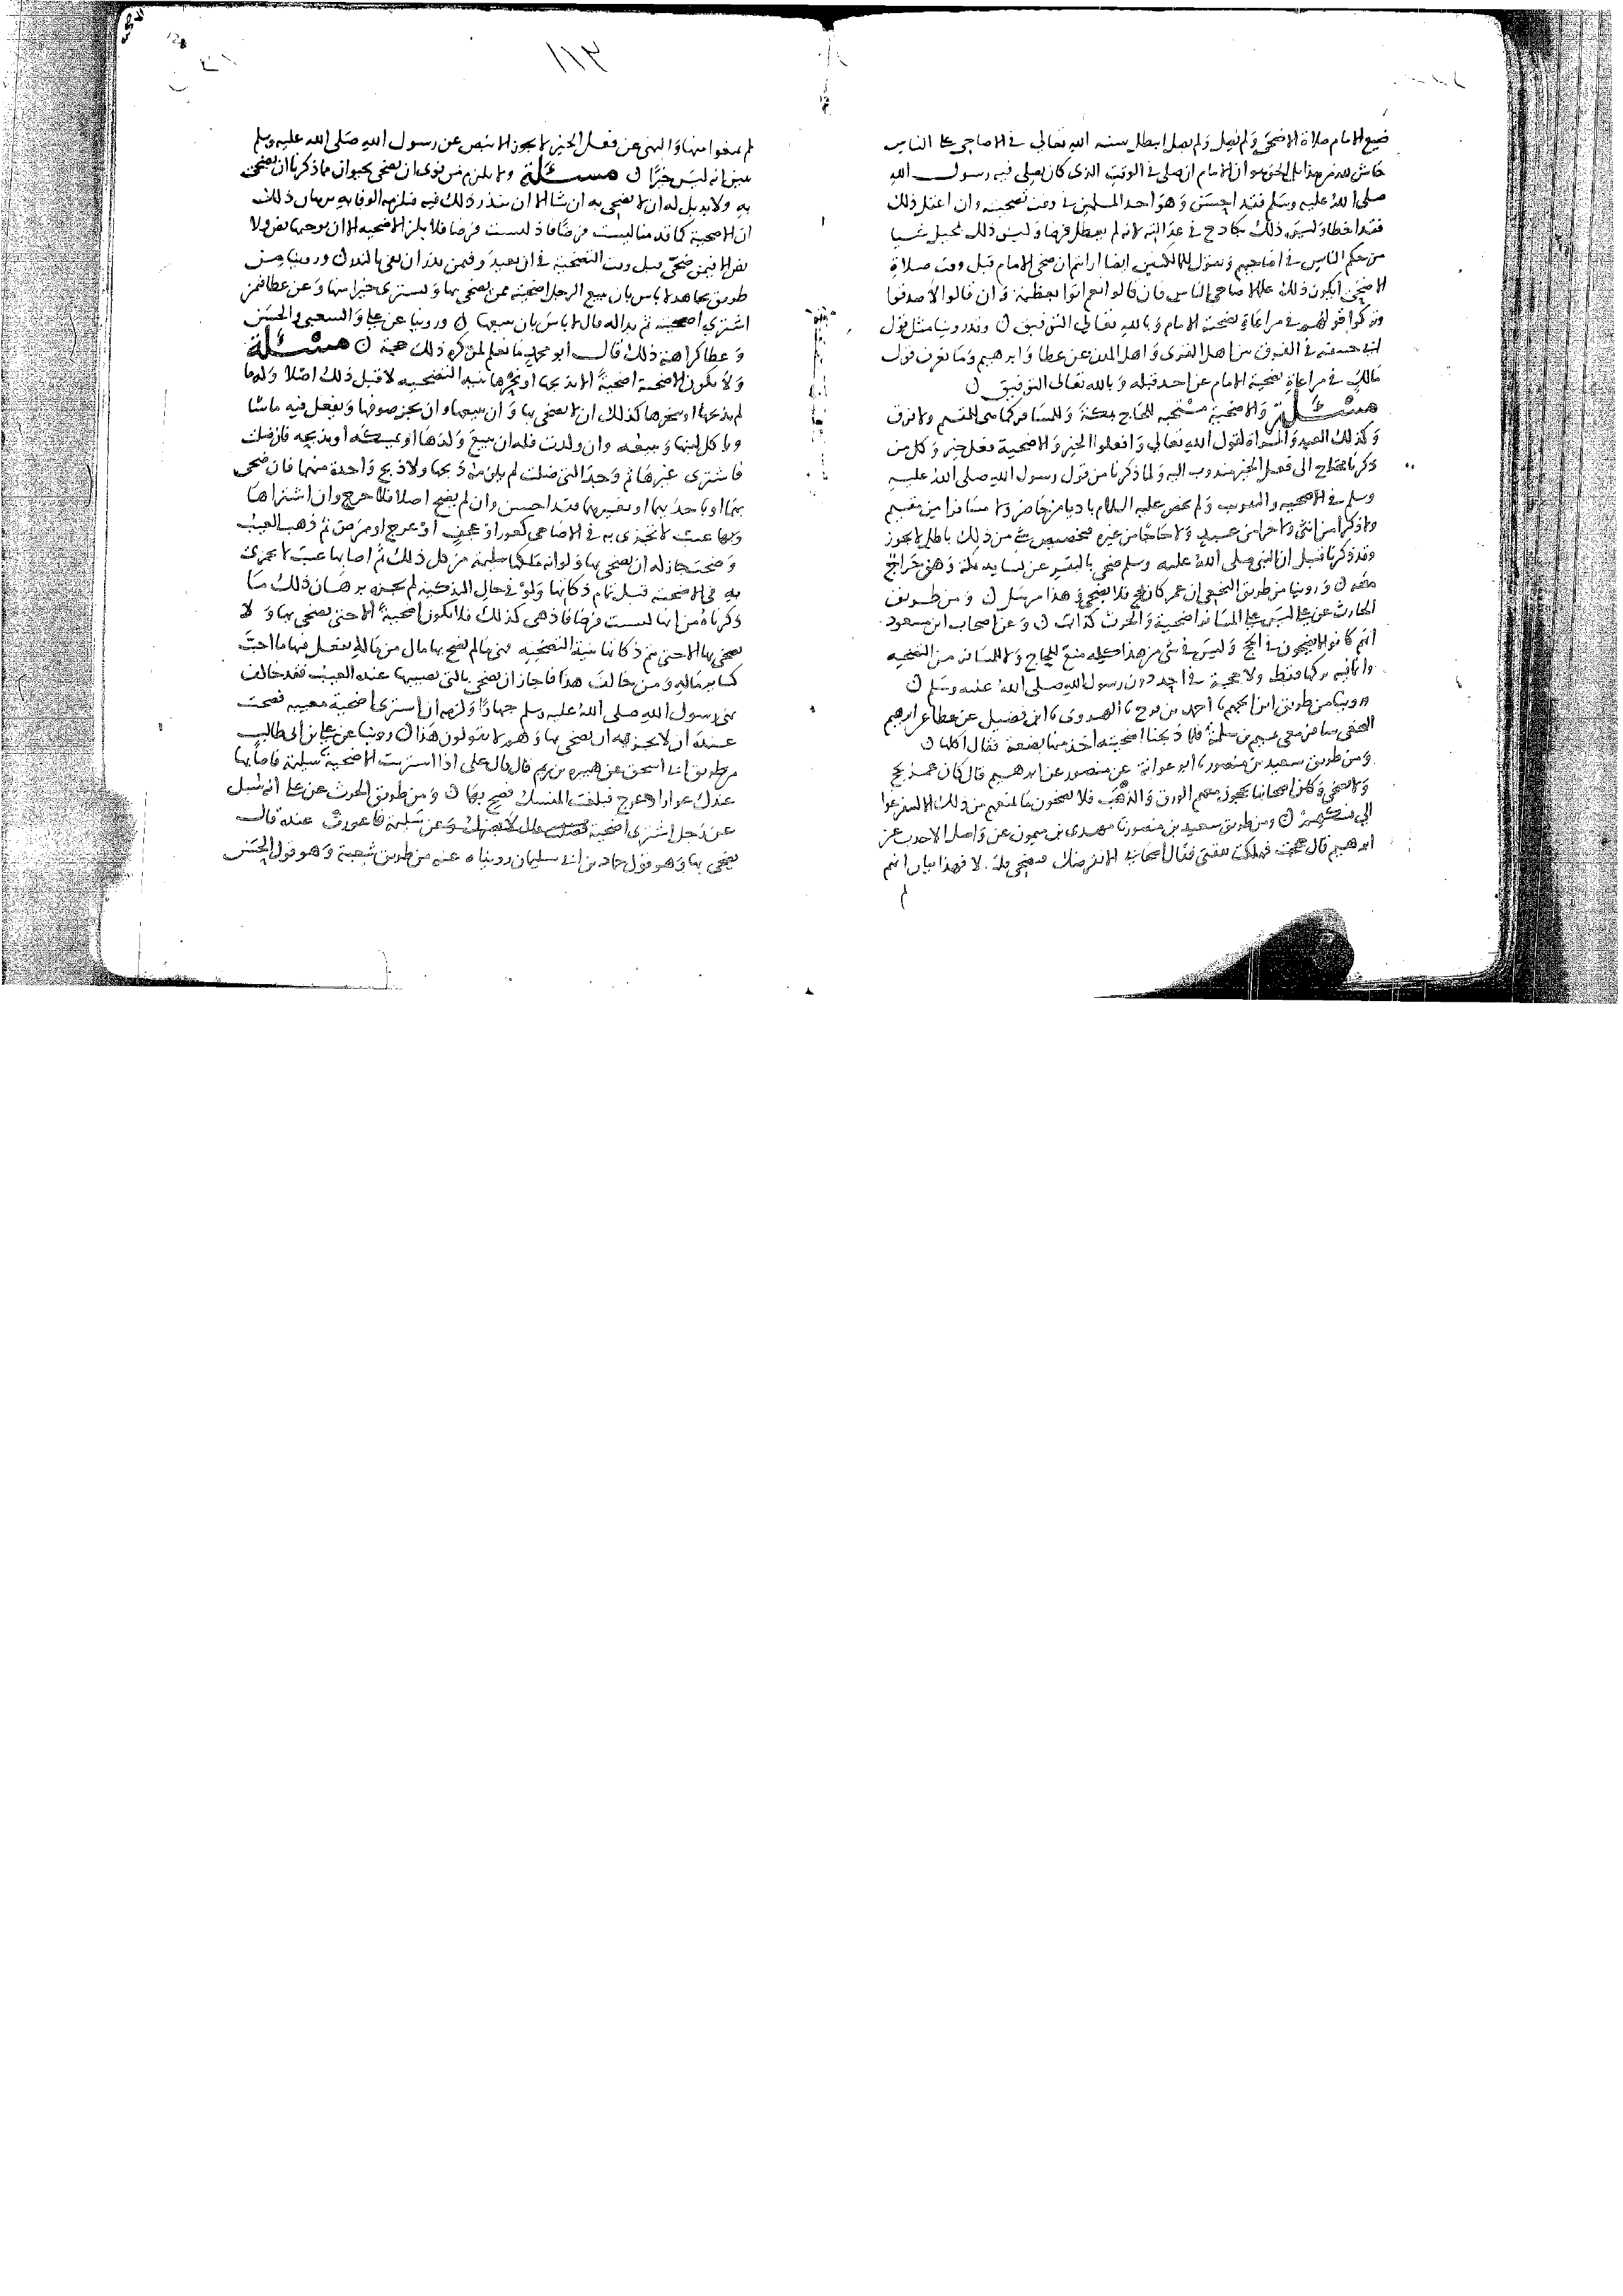 ضيع الامام صلاة الاضحى ولم يصل ولم يصل ابطل سنه الله تعالى في الاضاحي على الناس
حاش لله من هذا بل الحق هو ان الامام ان صلى في الوقت الذي كان يصلي فيه رسول الله
صلى الله عليه وسلم فقد احسن وهو احد المسلمين في وقت تضحيته وان اغفل ذلك
فقد اخطا وليس ذلك بقادح في عدالته لانه لم يعطل فرضا وليس ذلك بمحيل شيا
من حكم الناس في اضاحيهم ونقول للمالكيين ايضا ارايتم ان ضحى الامام قبل وقت صلاة
الاضحى ايكون ذلك على اضاحي الناس فان قالوا نعم اتوا بعظيمة وان قالوا لا صدقوا
وتركوا قولهم في مراعاة تضحية الامام وبالله تعالى التوفيق ن وقد روينا مثل قول
ابي حنيفه في الفرق بين اهل القرى واهل المدن عن عطا وابرهيم وما نعرف قول
مالك في مراعاة تضحية الامام عن احد قبله وبالله تعالى التوفيق ن
مسئلة والاضحية مستحبه للحاج بمكة وللمسافر كما هي للمقيم ولا فرق
وكذلك العبد والمراة لقول الله تعالى وافعلوا الخير والاضحية فعل خير وكل من
ذكرنا محتاج الى فعل الخير مندوب اليه ولما ذكرنا من قول رسول الله صلى الله عليه
وسلم في الاضحيه والتقريب ولم يخص عليه السلام باديا من حاضر ولا مسافرا من مقيم
ولا ذكرا من انثى ولا حرا من عبد ولا حاجا من غيره فتخصيص شي من ذلك باطل لا يجوز
وقد ذكرنا قبل ان النبي صلى الله عليه وسلم ضحى بالبقر عن نسايه بمكة وهن حواج
معه ن وروينا من طريق النخعي ان عمر كان يحج فلا يضحي وهذا مرسل ن ومن طريق
الحارث عن علي ليس على المسافر اضحية والحرث كذاب ن وعن اصحاب ابن مسعود
انهم كانوا لا يضحون في الحج وليس في شي من هذا كله منع للحاج ولا للمسافر من التضحيه
وانما فيه تركها فقط ولا حجة في احد دون رسول الله صلى الله عليه وسلم ن
روينا من طريق ابن الجهم نا احمد بن فرج نا الهروي نا ابن فضيل عن عطا عن ابرهيم
النخعي سافر معي تميم بن سلمة فلما ذبحنا اضحيته اخذ منها بضعة فقال اكلها ن
ومن طريق سعيد بن منصور نا ابو عوانة عن منصور عن ابرهيم قال كان عمر يحج
ولا يضحي وكان اصحابنا يحجون معهم الورق والذهب فلا يضحون ما يمنعهم من ذلك الا ليتفرغوا
الى نسكهم ن ومن طريق سعيد بن منصور نا مهدي بن ميمون عن واصل الاحدب عن
ابرهيم قال حججت فهلكت نفقتي فقال اصحابي الا نقرضك فتضحي قلت لا فهذا بيان انهم
لم
١١٣
لم يمنعوا منها والنهي عن فعل الخير لا يجوز الا بنص عن رسول الله صلى الله عليه وسلم
يبين انه ليس خيرا ن مسئلة ولا يلزم من نوى ان يضحي بحيوان مما ذكرنا ان يضحي
به ولا بد بل له ان لا يضحي به ان شا الا ان ينذر ذلك فيه فيلزمه الوفا به برهان ذلك
ان الاضحية كما قدمنا ليست فرضا فاذ ليست فرضا فلا يلزم الاضحيه الا ان يوجبها نص ولا
نص الا فيمن ضحى قبل وقت التضحية في ان يعيد وفيمن نذر ان يفي بالنذر ن وروينا من
طريق مجاهد لا باس بان يبيع الرجل اضحيته ممن يضحي بها ويشتري خيرا منها وعن عطا فيمن
اشترى اضحيته ثم بدا له قال لا باس بان يبيعها ن وروينا عن علي والشعبي والحسن
وعطا كراهة ذلك قال ابو محمد ما نعلم لمن كره ذلك حجة ن مسئلة
ولا تكون الاضحية اضحية الا بذبحها او نحرها بنية التضحيه لا قبل ذلك اصلا وله ما
لم يذبحها او ينحرها كذلك ان لا يضحي بها وان يبيعها وان يجز صوفها ويفعل فيه ما شا
وياكل لبنها ويبيعه وان ولدت فله ان يبيع ولدها او يمسكه او يذبحه فان ضلت
فاشترى غيرها ثم وجد التي ضلت لم يلزمه ذبحها ولا ذبح واحدة منهما فان ضحى
بهما او باحديهما او بغيرهما فقد احسن وان لم يضح اصلا فلا حرج وان اشتراها
وبها عيب لا تجزي به في الاضاحي كعور او عجف او عرج او مرض ثم ذهب العيب
وصحت جاز له ان يضحي بها ولو انه ملكها سليمة من كل ذلك ثم اصابها عيب لا تجزي
به في الاضحية قبل تمام ذكاتها ولو في حال التذكية لم تجزه برهان ذلك ما
ذكرناه من انها ليست فرضا فاذ هي كذلك فلا تكون اضحية الا حتى يضحى بها ولا
يضحى بها الا حتى تتم ذكاتها بنية التضحيه فهي ما لم يضح بها مال من ماله يفعل فيها ما احب
كساير ماله ومن خالف هذا فاجاز ان يضحي بالتي يصيبها عنده العيب فقد خالف
نهي رسول الله صلى الله عليه وسلم جهارا ولزمه ان اشترى اضحية معيبه فصحت
عنده ان لا تجزيه ان يضحي بها وهم لا يقولون هذا ن روينا عن علي بن ابي طالب
من طريق ابي اسحق عن هبيرة بن يريم قال قال علي اذا اشتريت الاضحية سليمة فاصابها
عندك عوار او عرج فبلغت المنسك فضح بها ن ومن طريق الحرث عن علي انه سئل
عن رجل اشترى اضحية سليمة فاعورت عنده قال
يضحي بها وهو قول حماد بن ابي سليمان رويناه عنه من طريق شعبة وهو قول الحسن